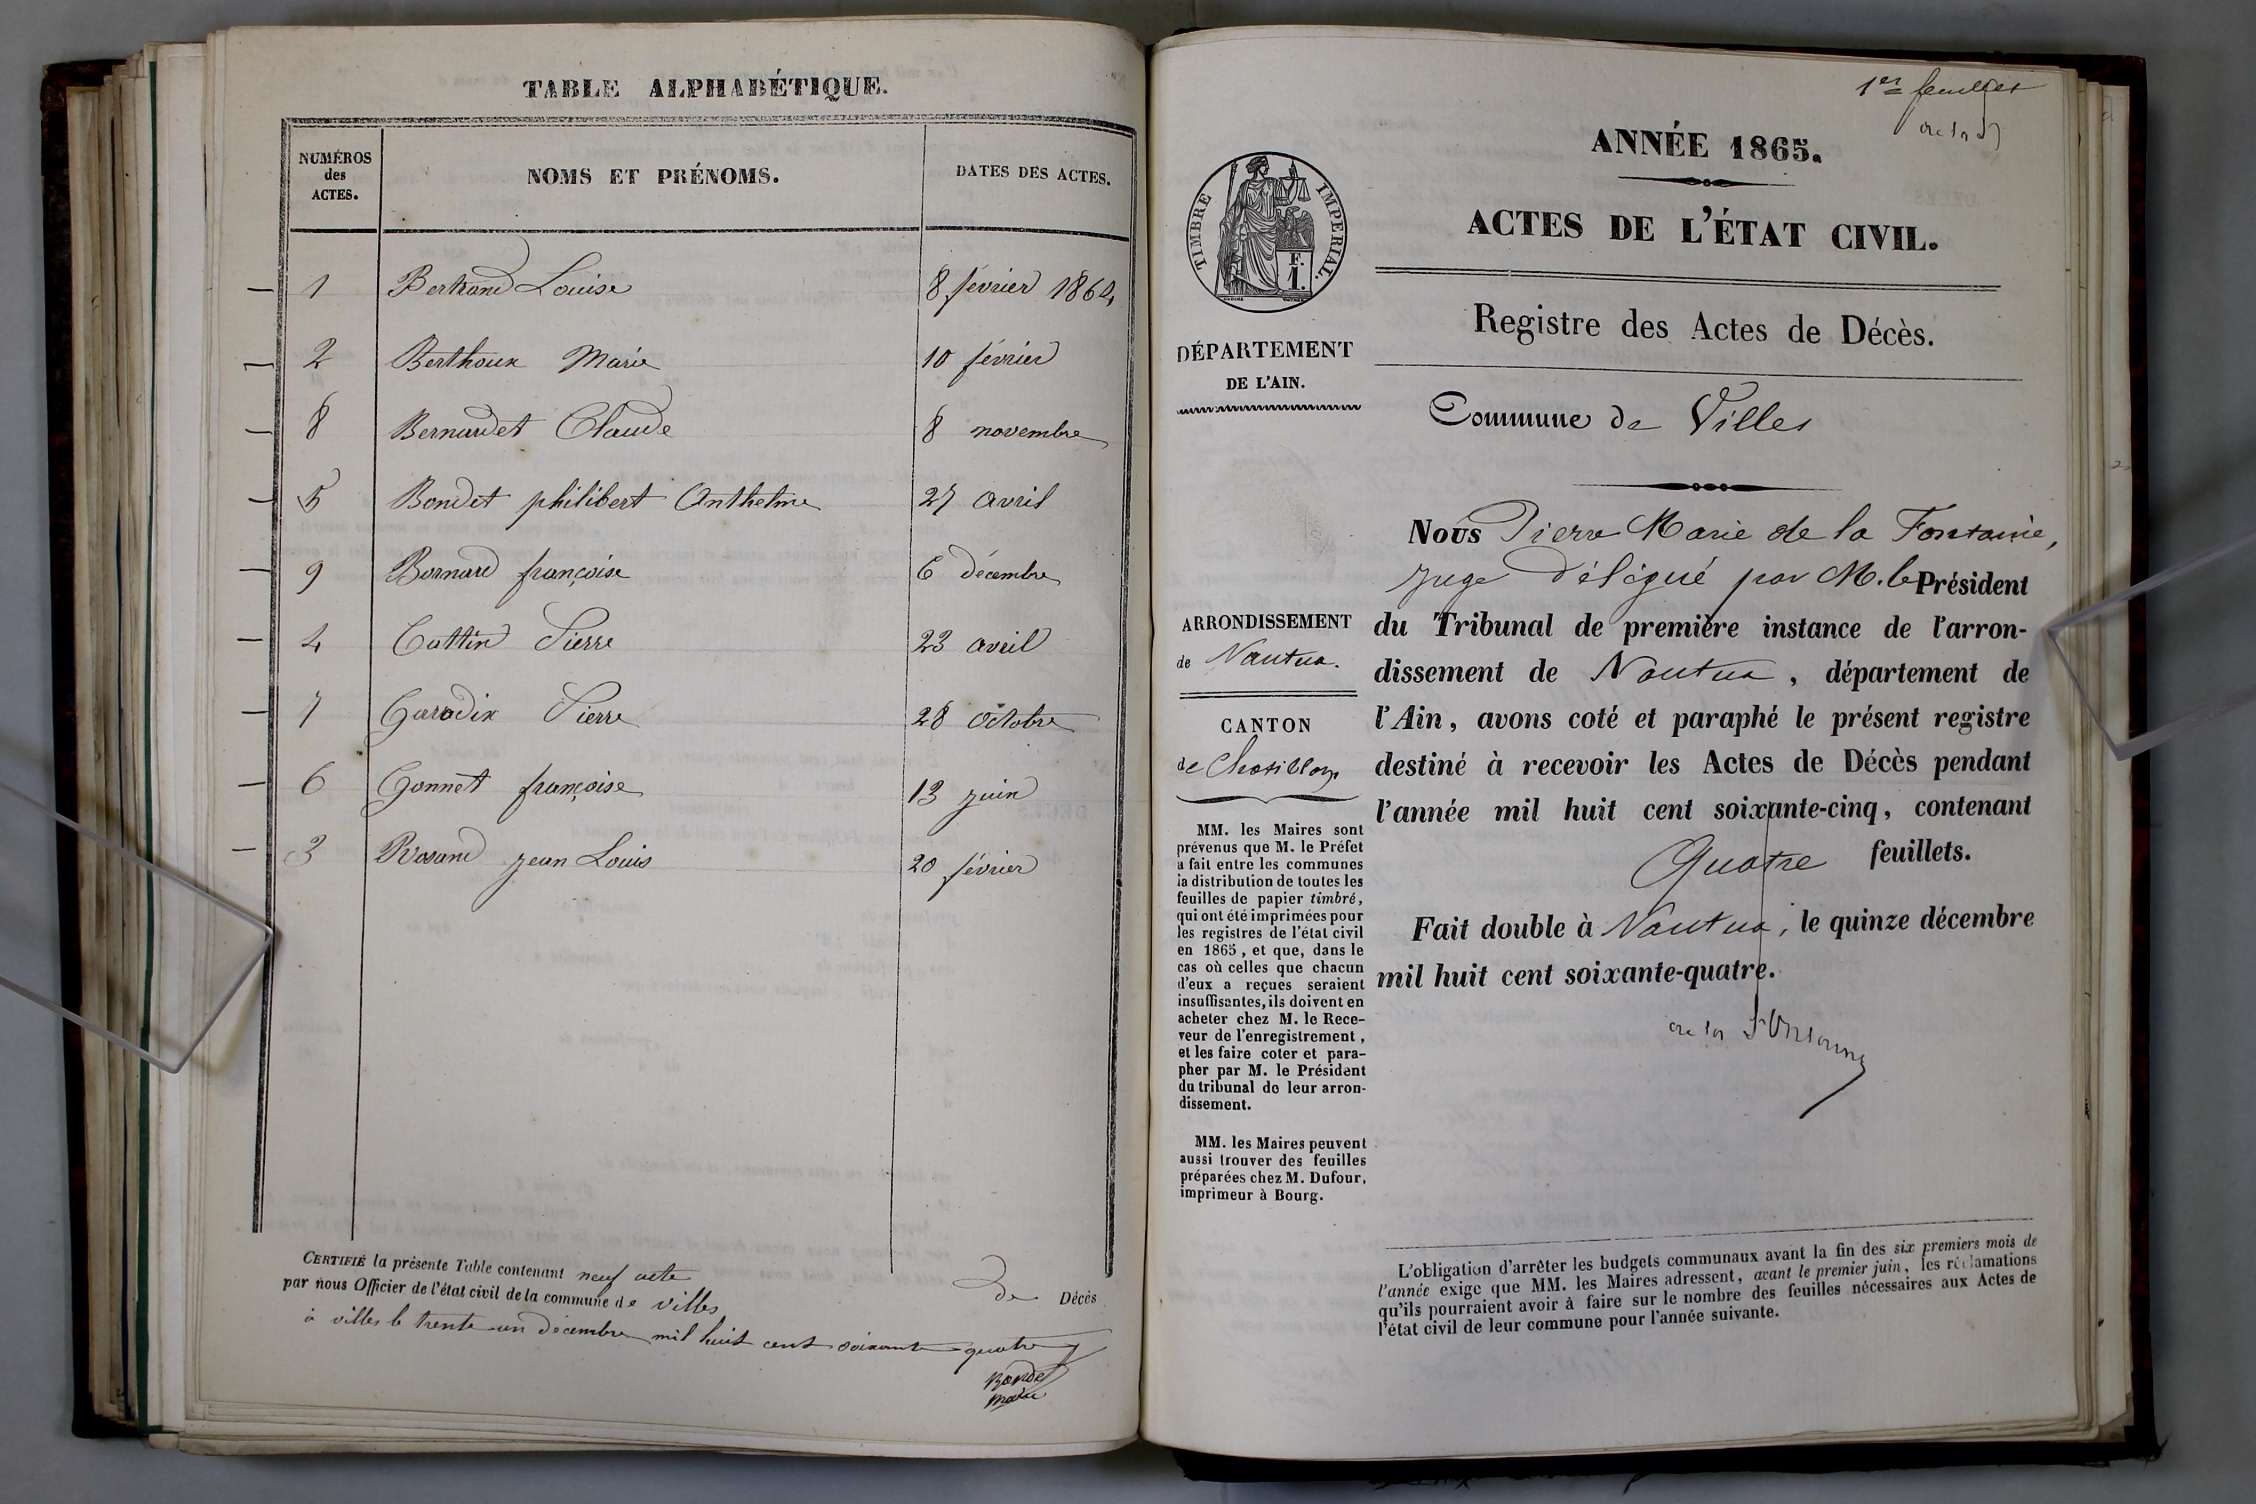 TABLE ALPHABÉTIQUE.
NUMÉROS des ACTES. NOMS ET PRÉNOMS. DATES DES ACTES.
1 Bertrand Louise 8 février 1864
2 Berthoux Marie 10 février
8 Bernardet Claude 8 novembre
5 Bondet philibert Anthelme 27 avril
9 Bornard françoise 6 décembre
4 Cottin Pierre 23 avril
7 Garadix Pierre 28 octobre
6 Gonnet françoise 13 juin
3 jean Louis 20 février
CERTIFIÉ la présente Table contenant neuf acte de Décès
par nous Officier de l'état civil de la commune de villes
à villes le trente un décembre mil huit cent soixante quatre
Bondet
maire
1er feuillet
ANNÉE 1865.
ACTES DE L'ÉTAT CIVIL.
Registre des Actes de Décès.
Commune de Villes
TIMBRE IMPERIAL.
F.
1.
DÉPARTEMENT
DE L'AIN.
ARRONDISSEMENT
de Nantua.
CANTON
de Chatillon
MM. les Maires sont
prévenus que M. le Préfet
a fait entre les communes
la distribution de toutes les
feuilles de papier timbré,
qui ont été imprimées pour
les registres de l'état civil
en 1865, et que, dans le
cas où celles que chacun
d'eux a reçues seraient
insuffisantes, ils doivent en
acheter chez M. le Rece-
veur de l'enregistrement,
et les faire coter et para-
pher par M. le Président
du tribunal de leur arron-
dissement.
MM. les Maires peuvent
aussi trouver des feuilles
préparées chez M. Dufour,
imprimeur à Bourg.
Nous Pierre Marie de la Fontaine,
juge délégué par M. le Président
du Tribunal de première instance de l'arron-
dissement de Nantua, département de
l'Ain, avons coté et paraphé le présent registre
destiné à recevoir les Actes de Décès pendant
l'année mil huit cent soixante-cinq, contenant
Quatre feuillets.
Fait double à Nantua, le quinze décembre
mil huit cent soixante-quatre.
L'obligation d'arrêter les budgets communaux avant la fin des six premiers mois de
l'année exige que MM. les Maires adressent, avant le premier juin, les réclamations
qu'ils pourraient avoir à faire sur le nombre des feuilles nécessaires aux Actes de
l'état civil de leur commune pour l'année suivante.